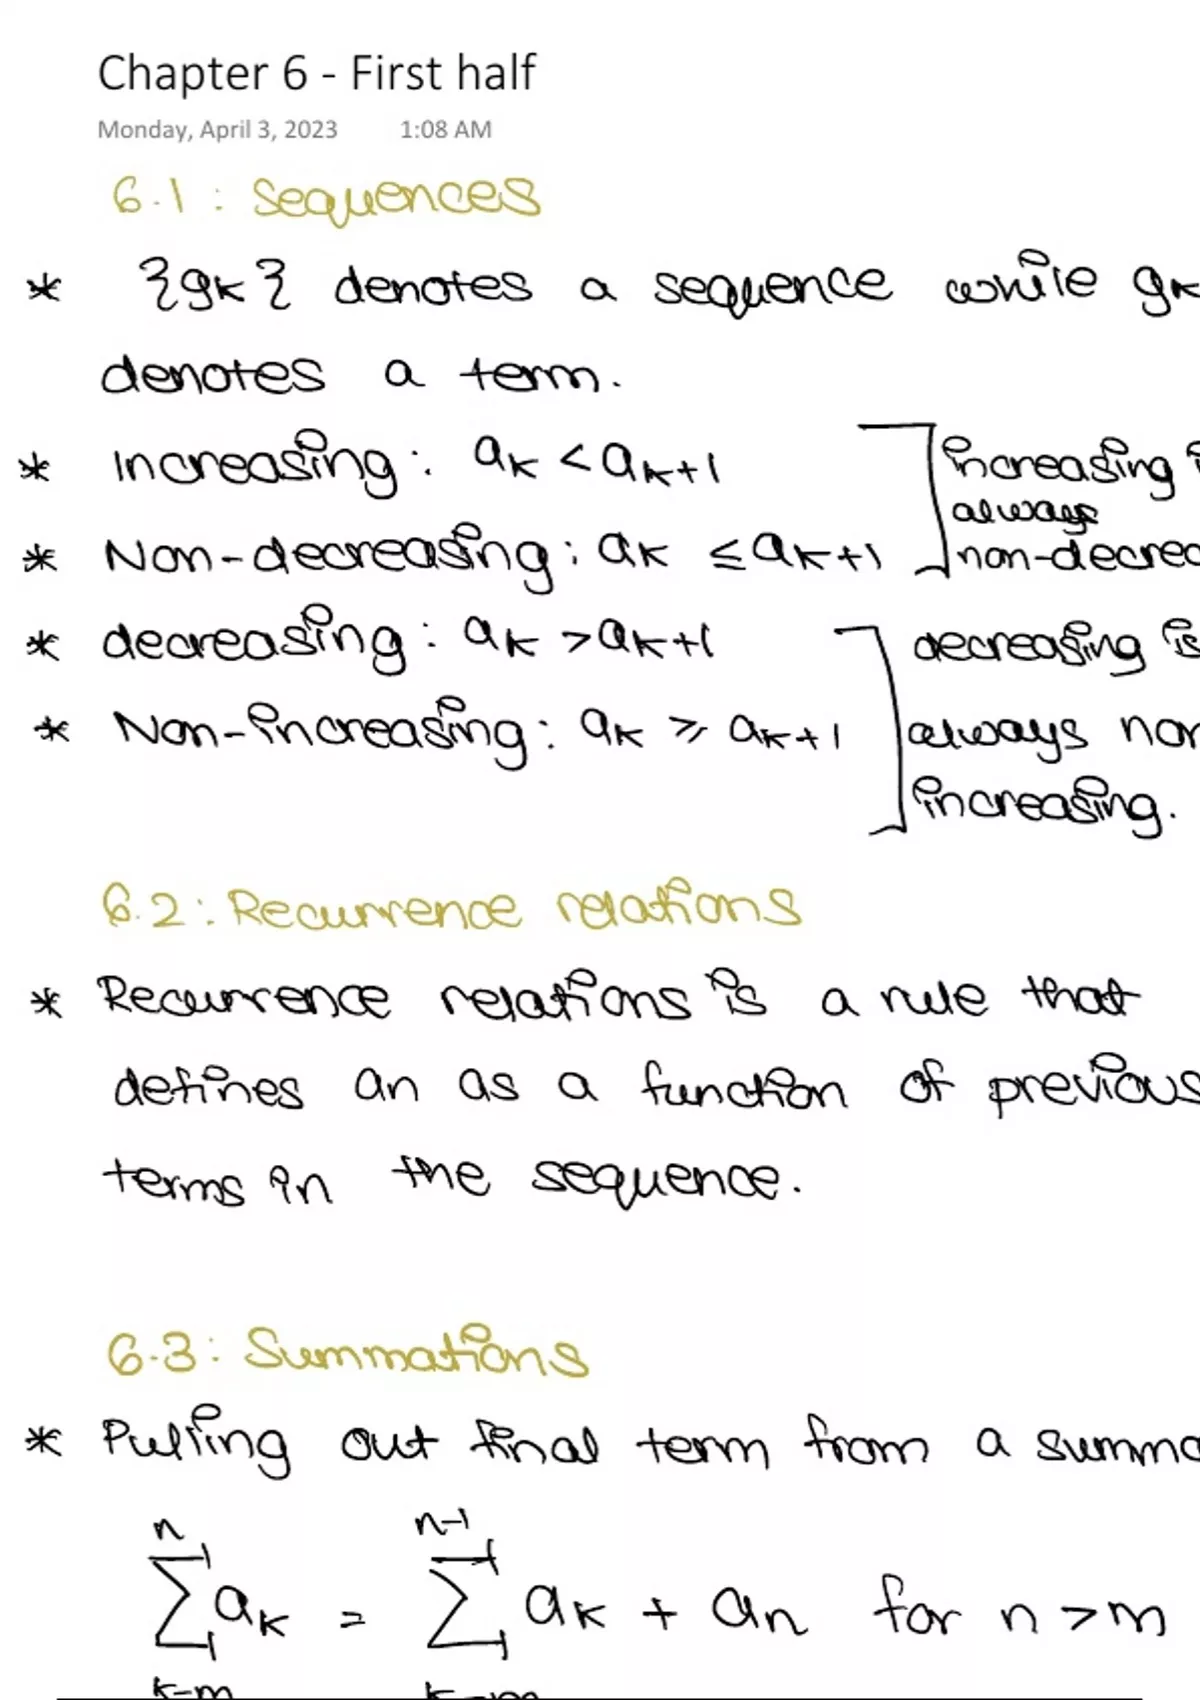 Chapter 6 - First half
Monday, April 3, 2023 1:08 AM
6.1 : Sequences
* {gk} denotes a sequence while gk
denotes a term.
* Increasing : ak < ak+1
increasing
always
* Non-decreasing : ak ≤ ak+1
non-decrea
* decreasing : ak > ak+1
decreasing is
* Non-increasing : ak ≥ ak+1
always non
increasing.
6.2 : Recurrence relations
* Recurrence relations is a rule that
defines an as a function of previous
terms in the sequence.
6.3 : Summations
* Pulling out final term from a summa
n n-1
∑ ak = ∑ ak + an for n > m
k=m k=m